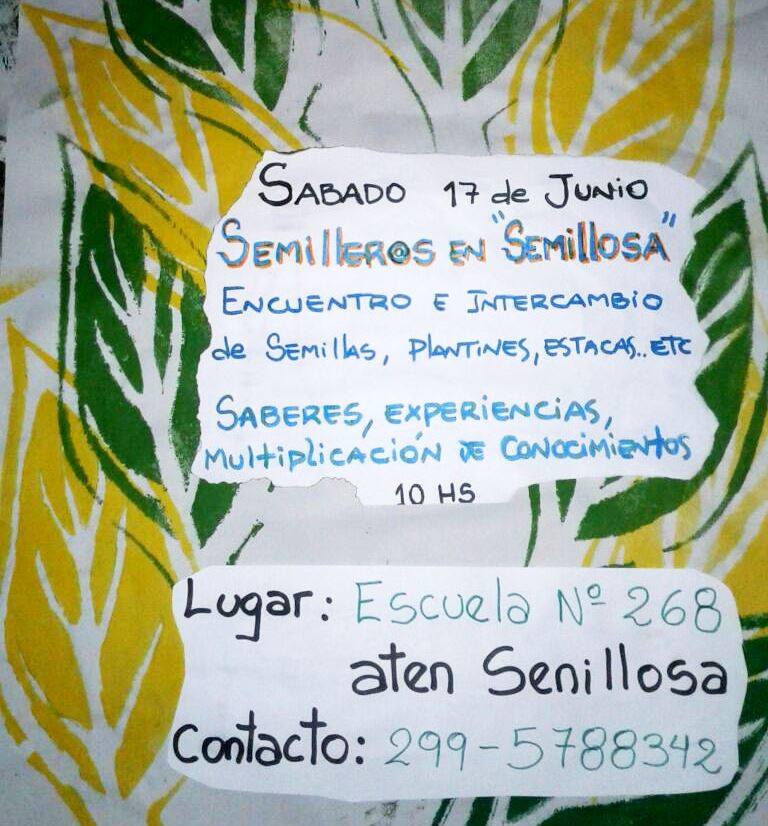 SABADO 17 de JUNIO
SEMILLER@S EN "SEMILLOSA"
ENCUENTRO E INTERCAMBIO
de SEMILLAS, PLANTINES, ESTACAS.. ETC
SABERES, EXPERIENCIAS,
MULTIPLICACIÓN DE CONOCIMIENTOS
10 HS
Lugar: Escuela Nº 268
aten Senillosa
Contacto: 299-5788342